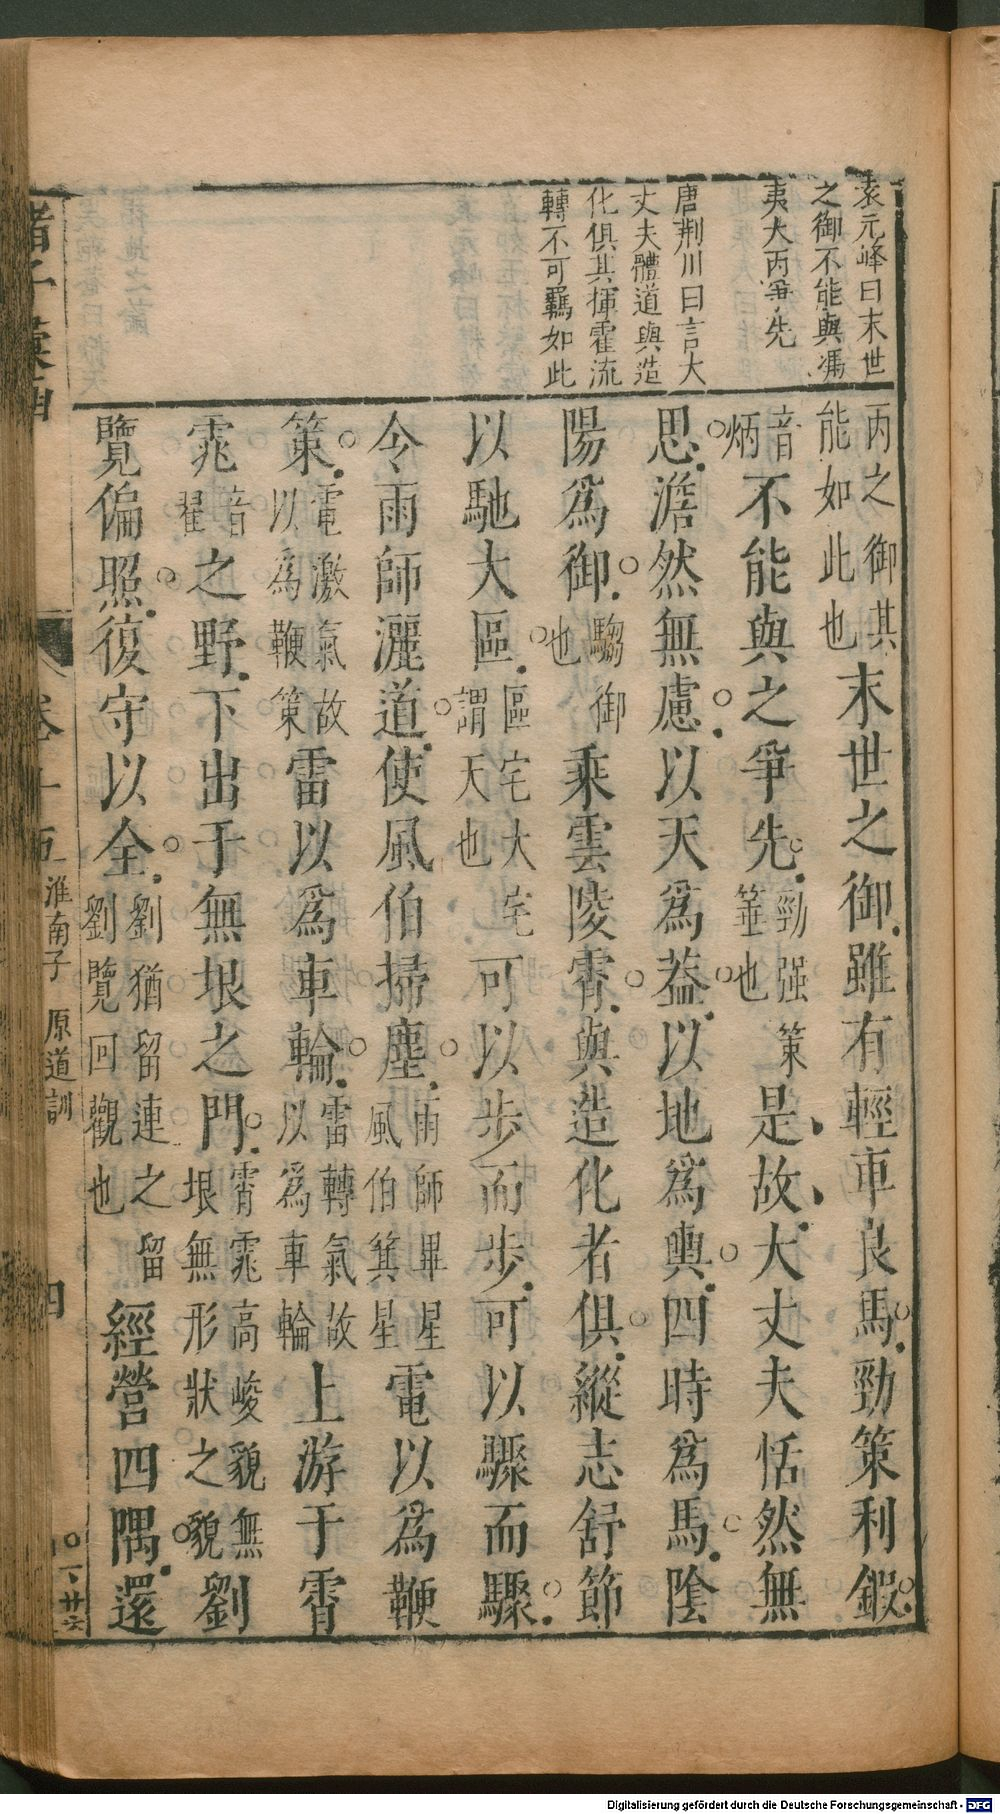 袁元峰曰末世
之御不能與馮
夷大丙爭先
唐荆川曰言大
丈夫體道與造
化俱其揮霍流
轉不可羈如此
丙之御其
能如此也
末世之御雖有輕車良馬勁策利鍜
音
炳
不能與之爭先
勁强策
箠也
是故大丈夫恬然無
思澹然無慮以天爲葢以地爲輿四時爲馬陰
陽爲御
騶御
也
乘雲陵霄與造化者俱縱志舒節
以馳大區
區宅大宅
謂天也
可以步而步可以驟而驟
令雨師灑道使風伯掃塵
雨師畢星
風伯箕星
電以爲鞭
策
電激氣故
以為鞭策
雷以爲車輪
雷轉氣故
以爲車輪
上游于霄
霓
音
翟
之野下出于無垠之門
霄霓高峻貌無
垠無形狀之貌
劉
覽偏照復守以全
劉猶留連之留
劉覽回觀也
經營四隅還
諸子彙函
卷十五
淮南子 原道訓
四
Digitalisierung gefördert durch die Deutsche Forschungsgemeinschaft - DFG